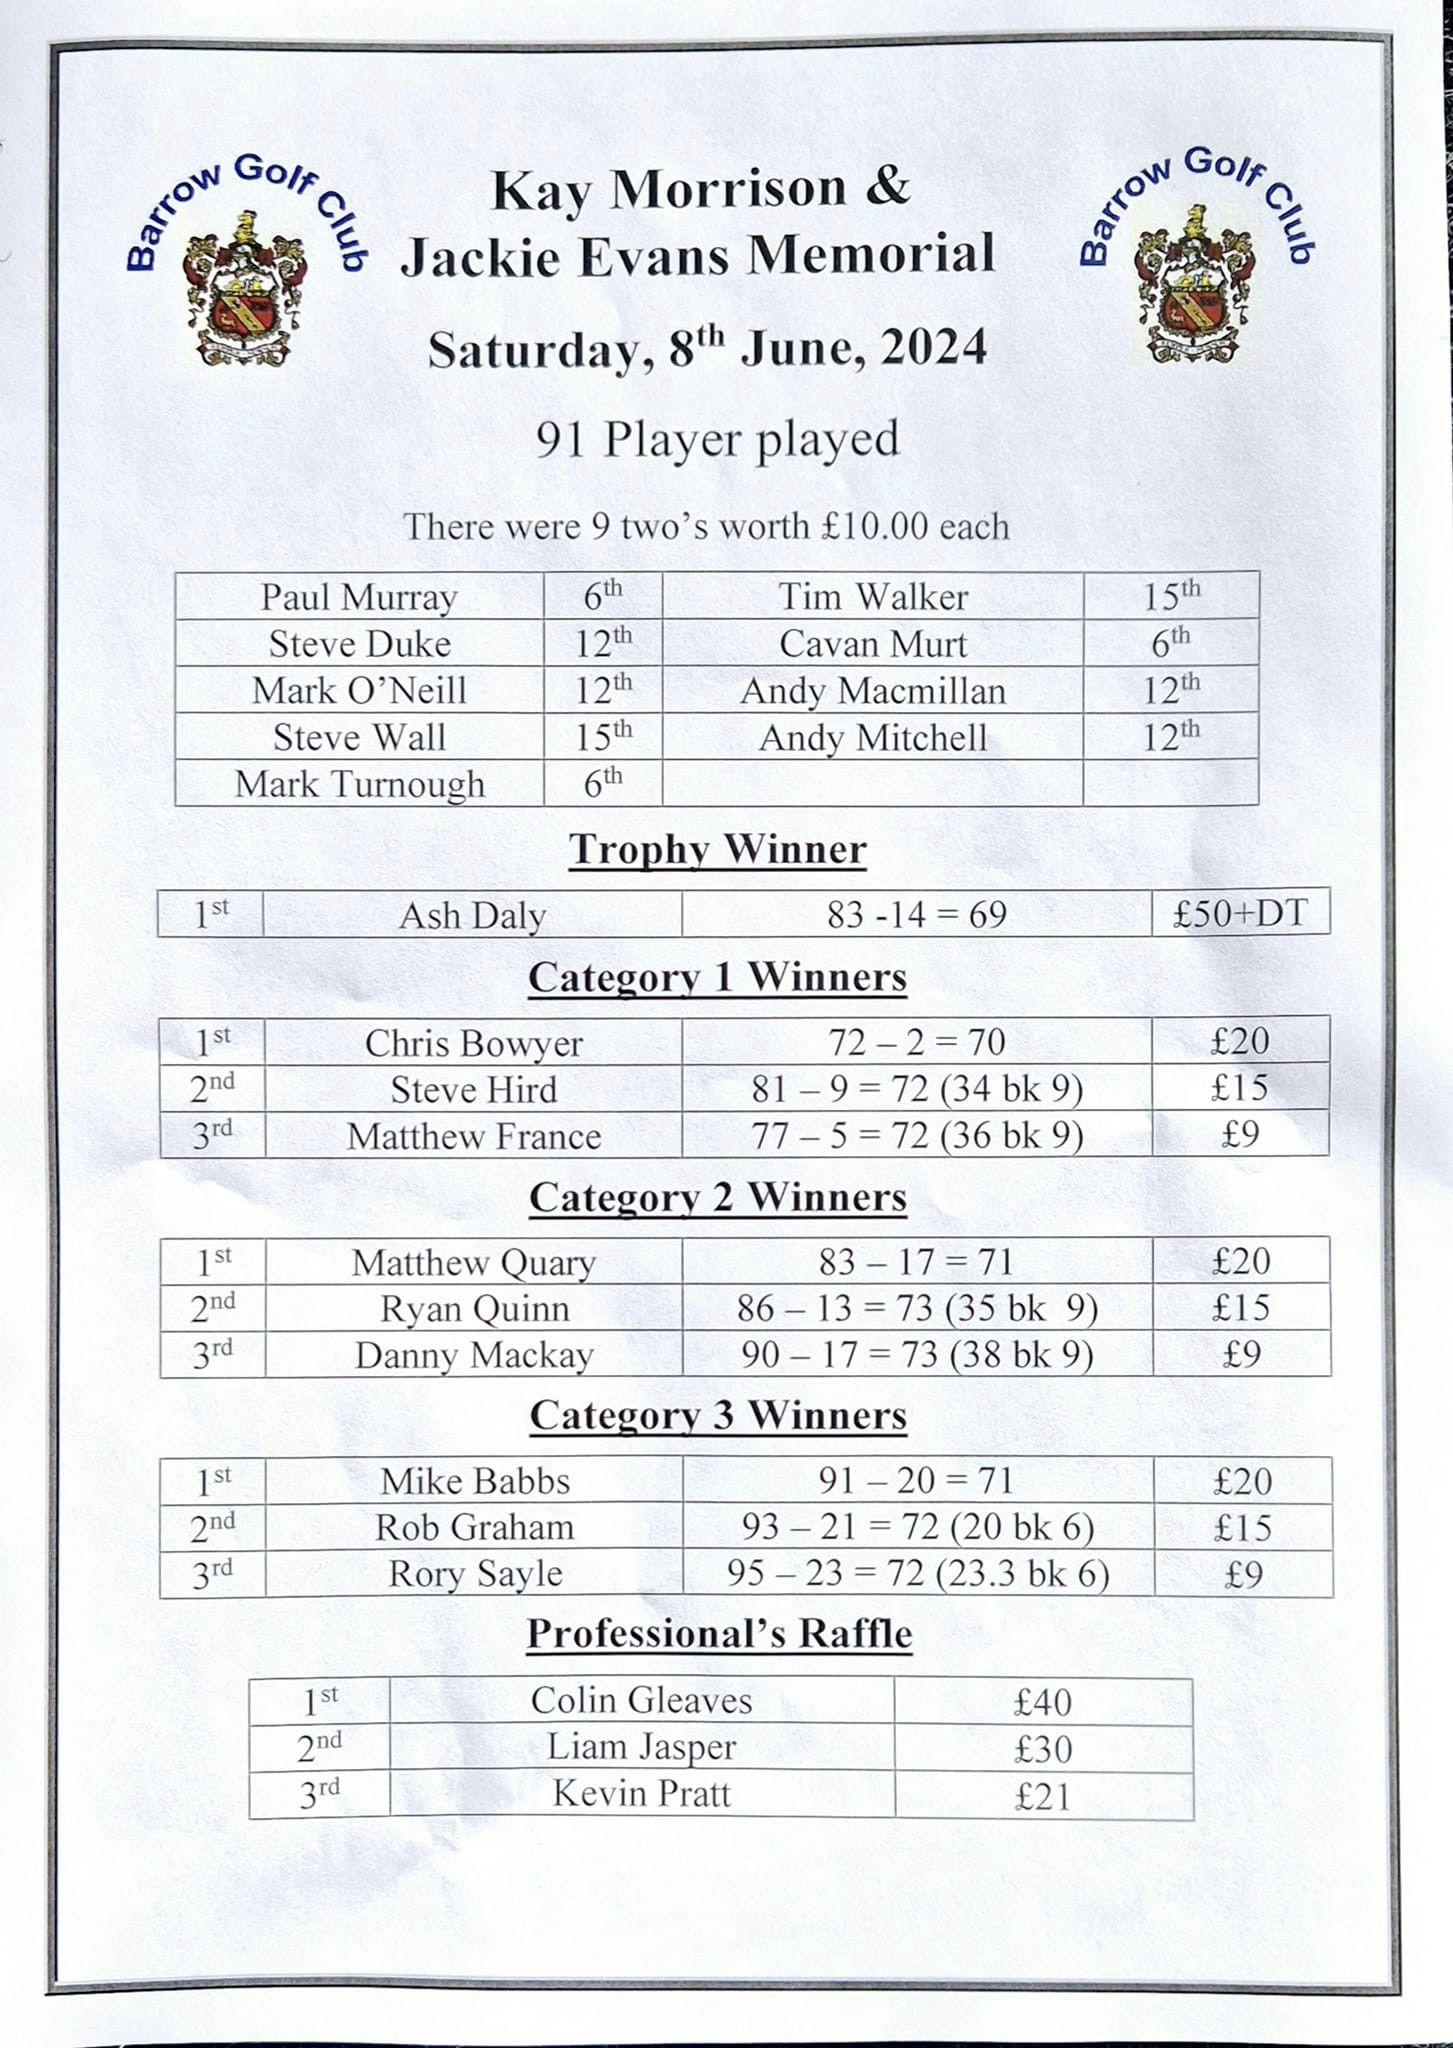 Barrow Golf Club
Barrow Golf Club
Kay Morrison &
Jackie Evans Memorial
Saturday, 8th June, 2024
91 Player played
There were 9 two's worth £10.00 each
Paul Murray 6th Tim Walker 15th
Steve Duke 12th Cavan Murt 6th
Mark O'Neill 12th Andy Macmillan 12th
Steve Wall 15th Andy Mitchell 12th
Mark Turnough 6th
Trophy Winner
1st Ash Daly 83 -14 = 69 £50+DT
Category 1 Winners
1st Chris Bowyer 72 – 2 = 70 £20
2nd Steve Hird 81 – 9 = 72 (34 bk 9) £15
3rd Matthew France 77 – 5 = 72 (36 bk 9) £9
Category 2 Winners
1st Matthew Quary 83 – 17 = 71 £20
2nd Ryan Quinn 86 – 13 = 73 (35 bk 9) £15
3rd Danny Mackay 90 – 17 = 73 (38 bk 9) £9
Category 3 Winners
1st Mike Babbs 91 – 20 = 71 £20
2nd Rob Graham 93 – 21 = 72 (20 bk 6) £15
3rd Rory Sayle 95 – 23 = 72 (23.3 bk 6) £9
Professional's Raffle
1st Colin Gleaves £40
2nd Liam Jasper £30
3rd Kevin Pratt £21